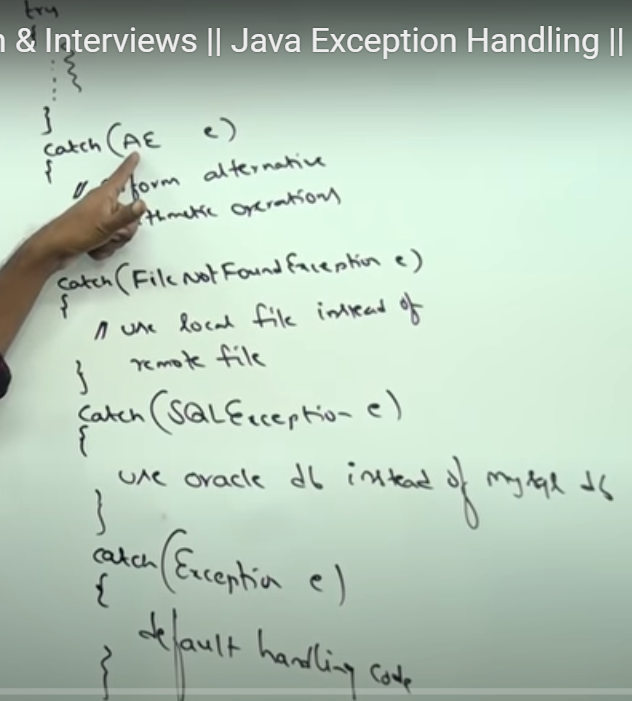 try
n & Interviews || Java Exception Handling ||
{
}
catch (AE e)
{
// form alternative
thmetic operations
catch (FileNotFoundException e)
{
// use local file instead of
remote file
}
catch (SQLException e)
{
use oracle db instead of mysql db
}
catch (Exception e)
{
default handling code
}